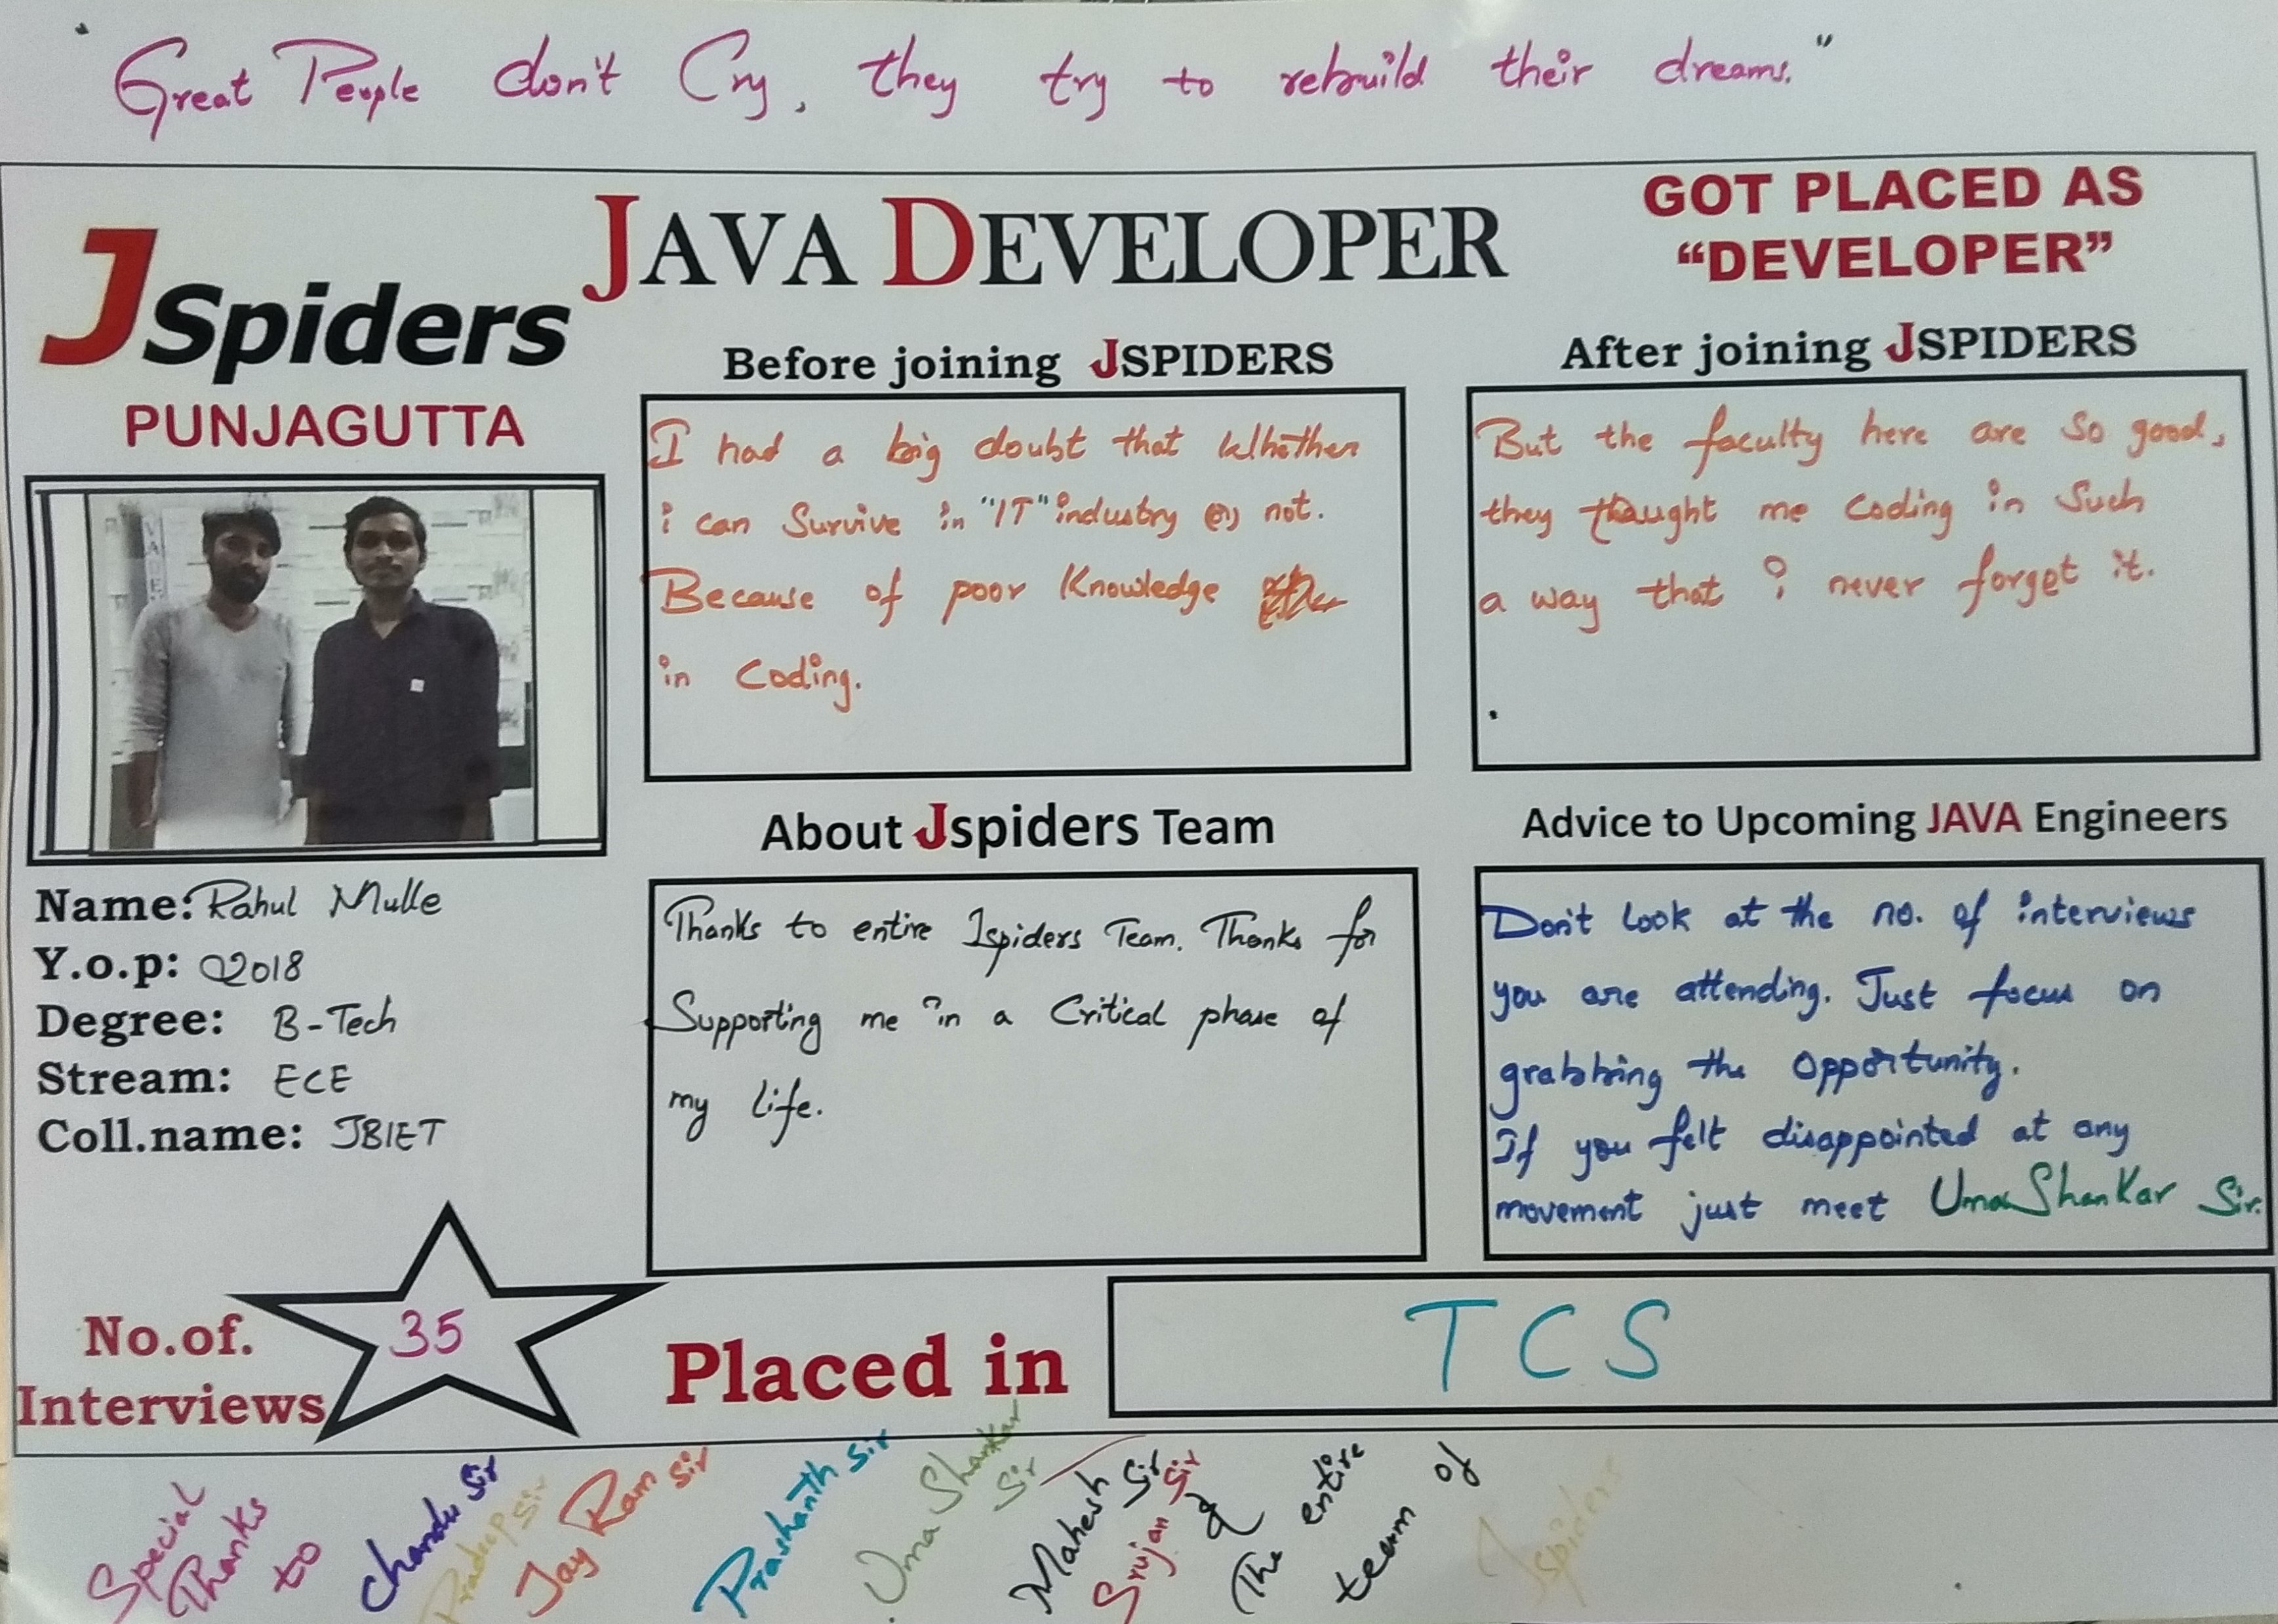 "Great People don't Cry, they try to rebuild their dreams."
JSpiders
PUNJAGUTTA
JAVA DEVELOPER
GOT PLACED AS
“DEVELOPER”
Before joining JSPIDERS
I had a big doubt that Whether
i can Survive in "IT" industry (or) not.
Because of poor Knowledge
in Coding.
After joining JSPIDERS
But the faculty here are so good,
they thaught me coding in Such
a way that i never forget it.
Name: Rahul Mulle
Y.o.p: 2018
Degree: B-Tech
Stream: ECE
Coll.name: JBIET
About Jspiders Team
Thanks to entire Jspiders Team. Thanks for
Supporting me in a Critical phase of
my life.
Advice to Upcoming JAVA Engineers
Don't look at the no. of interviews
you are attending. Just focus on
grabbing the opportunity.
If you felt disappointed at any
movement just meet UmaShanKar Sir.
No.of.
Interviews
35
Placed in
TCS
Special
Thanks
to
Chandu Sir
Pradeep Sir
Jay Ram Sir
Prashanth Sir
Uma Shankar
Sir
Mahesh Sir
Srujan Sir
&
The entire
team of
Jspiders